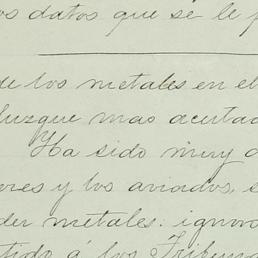 os datos que se le p
de los metales en el
luzgue mas acertad
Ha sido muy d
ores y los aviados, e
der metales: ignora
tido á los Tribuna